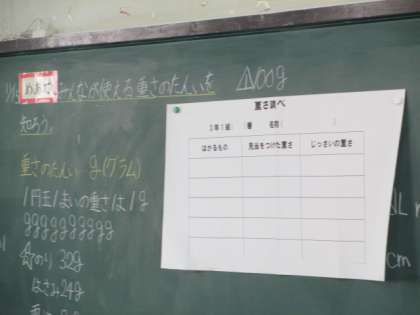 めあて みんなが使える重さのたんいを
知ろう。
100g
重さのたんい g(グラム)
1円玉1まいの重さは1g
gggggggggg
のり 32g
はさみ24g
重さ調べ
3年1組 ( 番 名前 )
はかるもの 見当をつけた重さ じっさいの重さ
cm